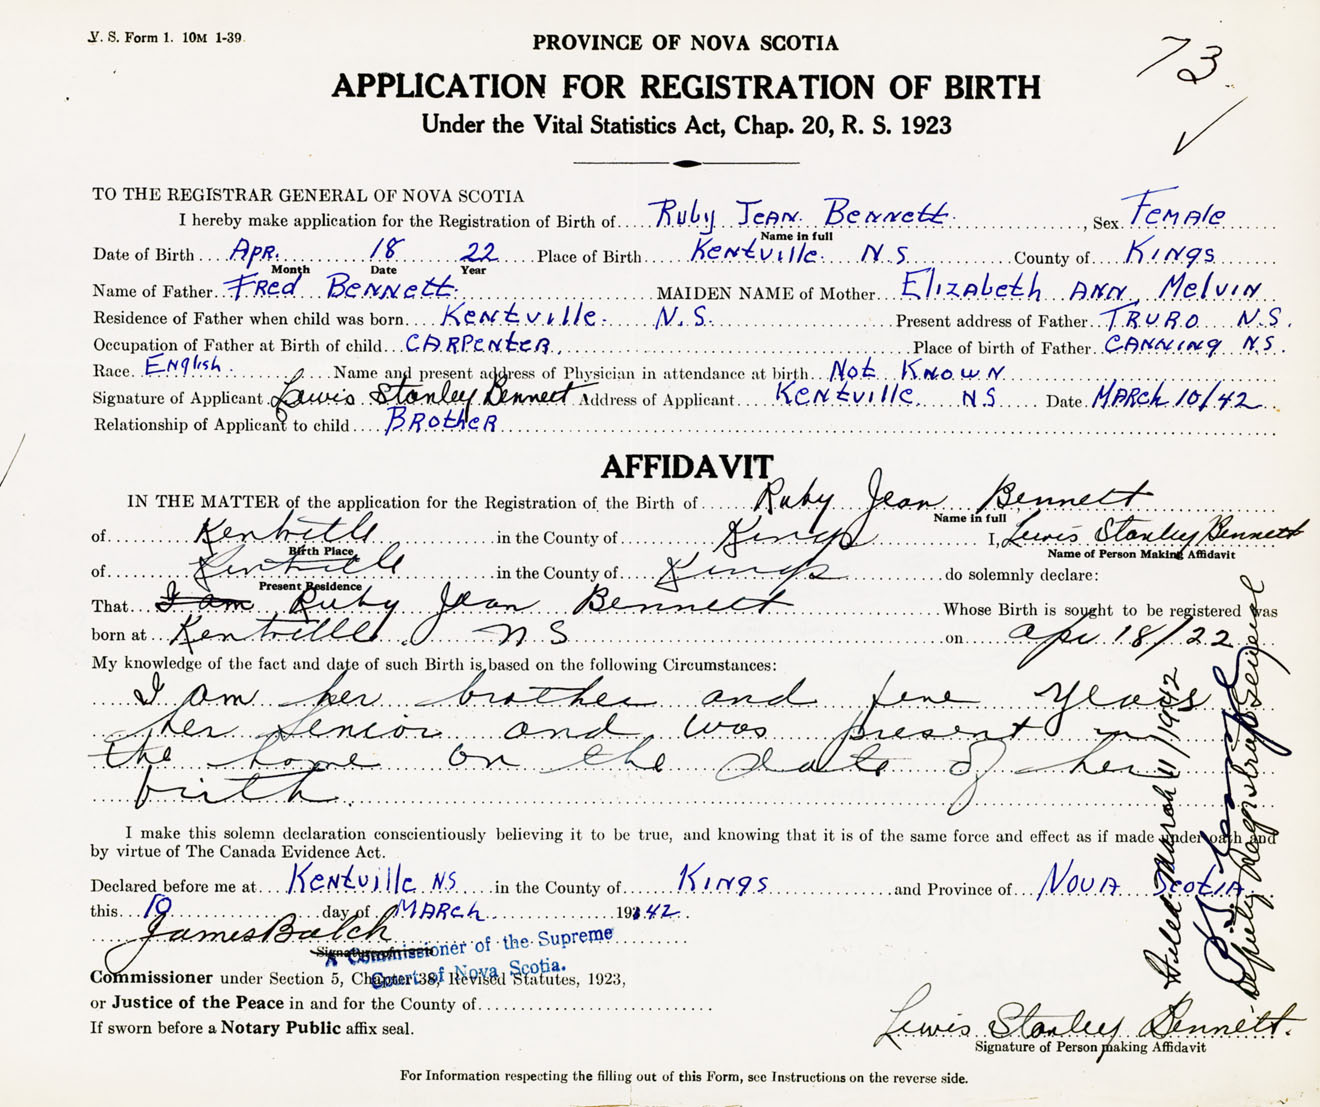 V. S. Form 1. 10M 1-39.
73
PROVINCE OF NOVA SCOTIA
APPLICATION FOR REGISTRATION OF BIRTH
Under the Vital Statistics Act, Chap. 20, R. S. 1923
TO THE REGISTRAR GENERAL OF NOVA SCOTIA
I hereby make application for the Registration of Birth of Ruby Jean Bennett, Sex Female
Name in full
Date of Birth Apr. 18 22 Place of Birth Kentville N.S County of Kings
Month Date Year
Name of Father Fred Bennett MAIDEN NAME of Mother Elizabeth Ann Melvin
Residence of Father when child was born Kentville N.S. Present address of Father Truro N.S.
Occupation of Father at Birth of child Carpenter Place of birth of Father Canning N.S.
Race English Name and present address of Physician in attendance at birth Not Known
Signature of Applicant Lewis Stanley Bennett Address of Applicant Kentville NS Date March 10/42
Relationship of Applicant to child Brother
AFFIDAVIT
IN THE MATTER of the application for the Registration of the Birth of Ruby Jean Bennett
Name in full
of Kentville in the County of Kings I, Lewis Stanley Bennett
Birth Place Name of Person Making Affidavit
of Kentville in the County of Kings do solemnly declare:
Present Residence
That I am Ruby Jean Bennett Whose Birth is sought to be registered was
born at Kentville, NS on Apr 18/22
My knowledge of the fact and date of such Birth is based on the following Circumstances:
I am her brother and five years
her senior and was present in
the home on the date of her
birth.
I make this solemn declaration conscientiously believing it to be true, and knowing that it is of the same force and effect as if made under oath and
by virtue of The Canada Evidence Act.
Declared before me at Kentville NS in the County of Kings and Province of Nova Scotia
this 10 day of March 1942.
James Balch
A Commissioner of the Supreme
Court of Nova Scotia.
Commissioner under Section 5, Chapter 38, Revised Statutes, 1923,
or Justice of the Peace in and for the County of
If sworn before a Notary Public affix seal.
Lewis Stanley Bennett.
Signature of Person making Affidavit
Filed March 11/1942
Deputy Registrar General
For Information respecting the filling out of this Form, see Instructions on the reverse side.